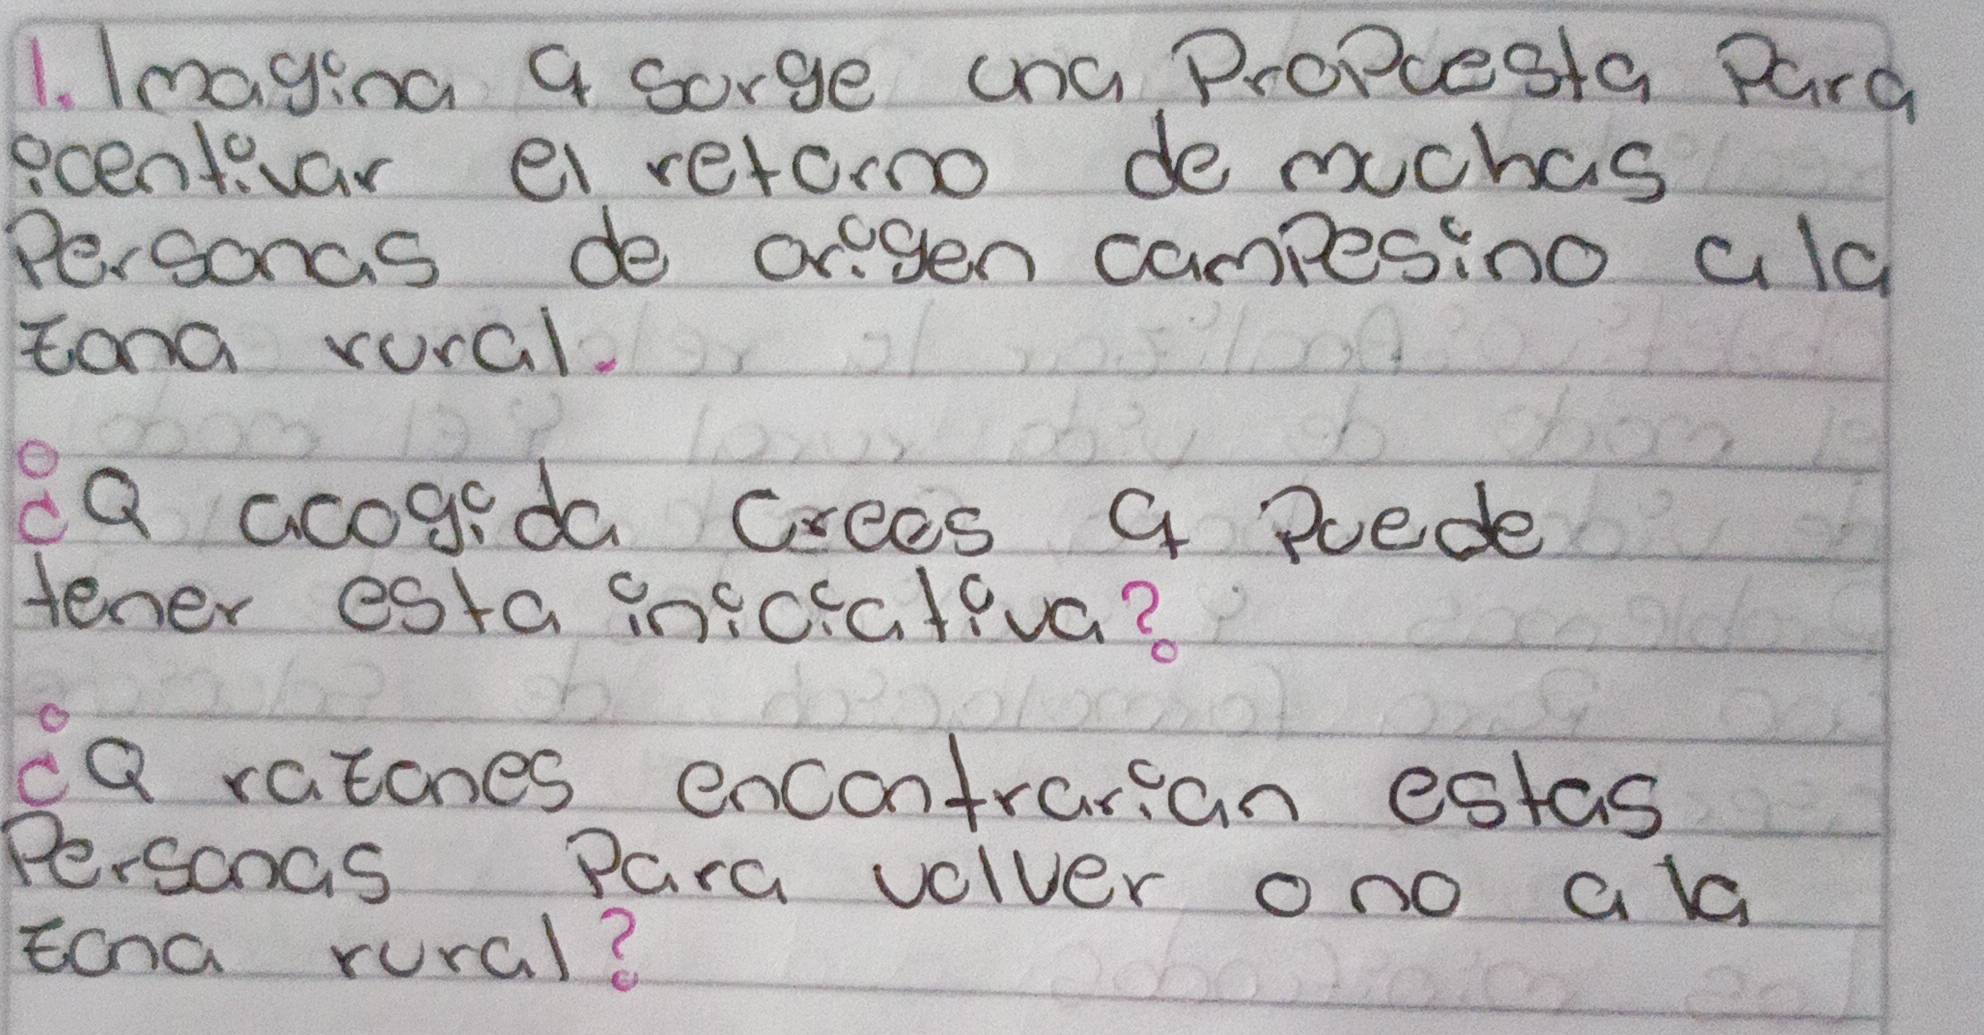 1. Imagina q surge una Propuesta Para
icentivar el retorno de muchas
Personas de origen campesino a la
zona rural.
¿Q acogida crees q Puede
tener esta iniciativa?
¿Q razones encontrarian estas
Personas Para volver o no a la
zona rural?